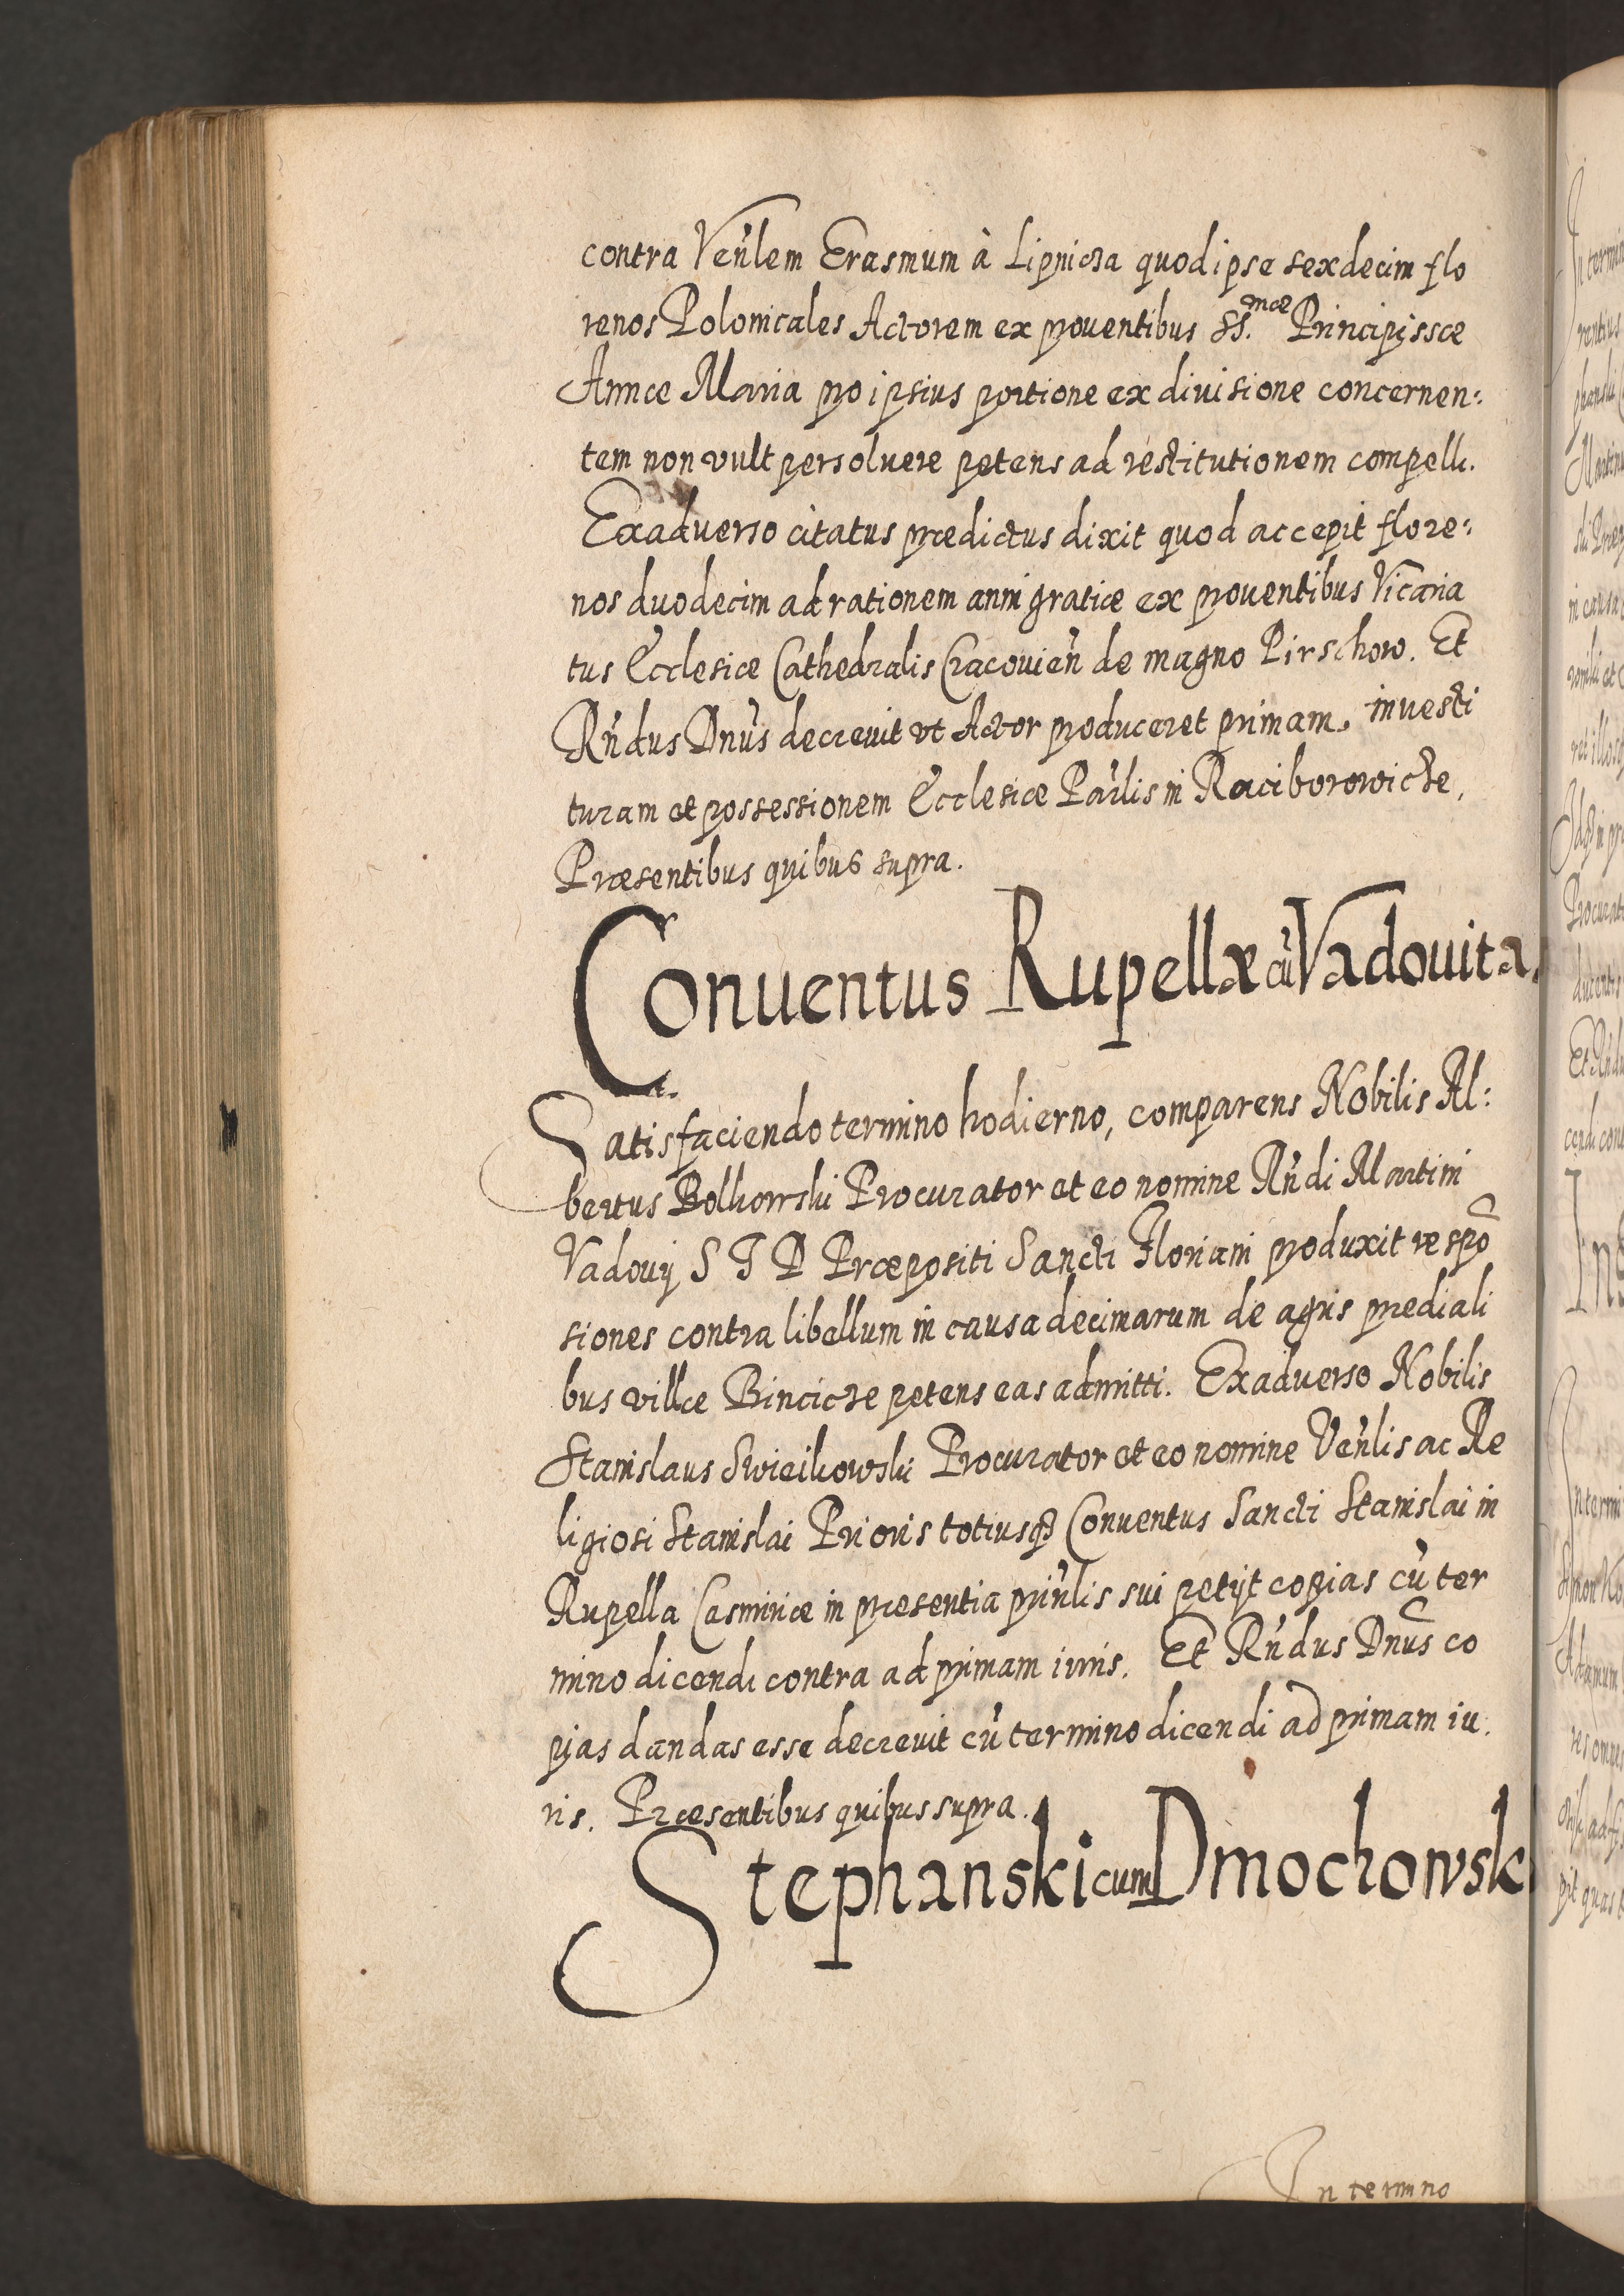 contra Veñlem Erasmum à Lipnicza quod ipse sexdecim flo
renos Polonicales Actorem ex prouentibus SS.mæ Principissæ
Annæ Maria pro ipsius portione ex diuisione concernen:
tem non vult persoluere petens ad restitutionem compelli.
Exaduerso citatus prædictus dixit quod accepit flore:
nos duodecim ad rationem anni gratiæ ex prouentibus Vicaria
tus Ecclesiæ Cathedralis Cracouień de magno Pirschow. Et
Rńdus Dnus decreuit vt Actor produceret primam. inuesti
turam et possessionem Ecclesiæ Parlis in Raciborowicze,
Præsentibus quibus supra.
Conuentus Rupellæ cū Vadouita.
Satisfaciendo termino hodierno, comparens Nobilis Al:
bertus Bolkowski Procurator et eo nomine Rńdi Martini
Vadouij S T D Præpositi Sancti Floriani produxit respō
siones contra libellum in causa decimarum de agris prediali
bus villæ Bincicze petens eas admitti. Exaduerso Nobilis
Stanislaus Swieikowski Procurator et eo nomine Veńlis ac Re
ligiosi Stanislai Prioris totiusq3 Conuentus Sancti Stanislai in
Rupella Casimiriæ in præsentia prinlis sui petijt copias cū ter
mino dicendi contra ad primam iuris. Et Rńdus Dnus co
pias dandas esse decreuit cū termino dicendi ad primam iu.
ris. Præsentibus quibus supra.
Stephanski cum Dmochowski
In termino